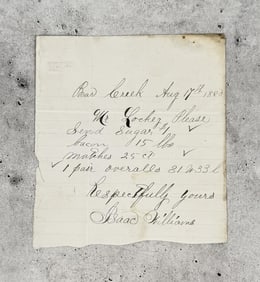 Bear Creek Aug 17th 188
Mr Lockey Please
Send Sugar $1 ✓
bacon 15 lbs
matches 25 ct ✓
✓ 1 pair overalls 31 33
Respectfully yours
Isaac Williams